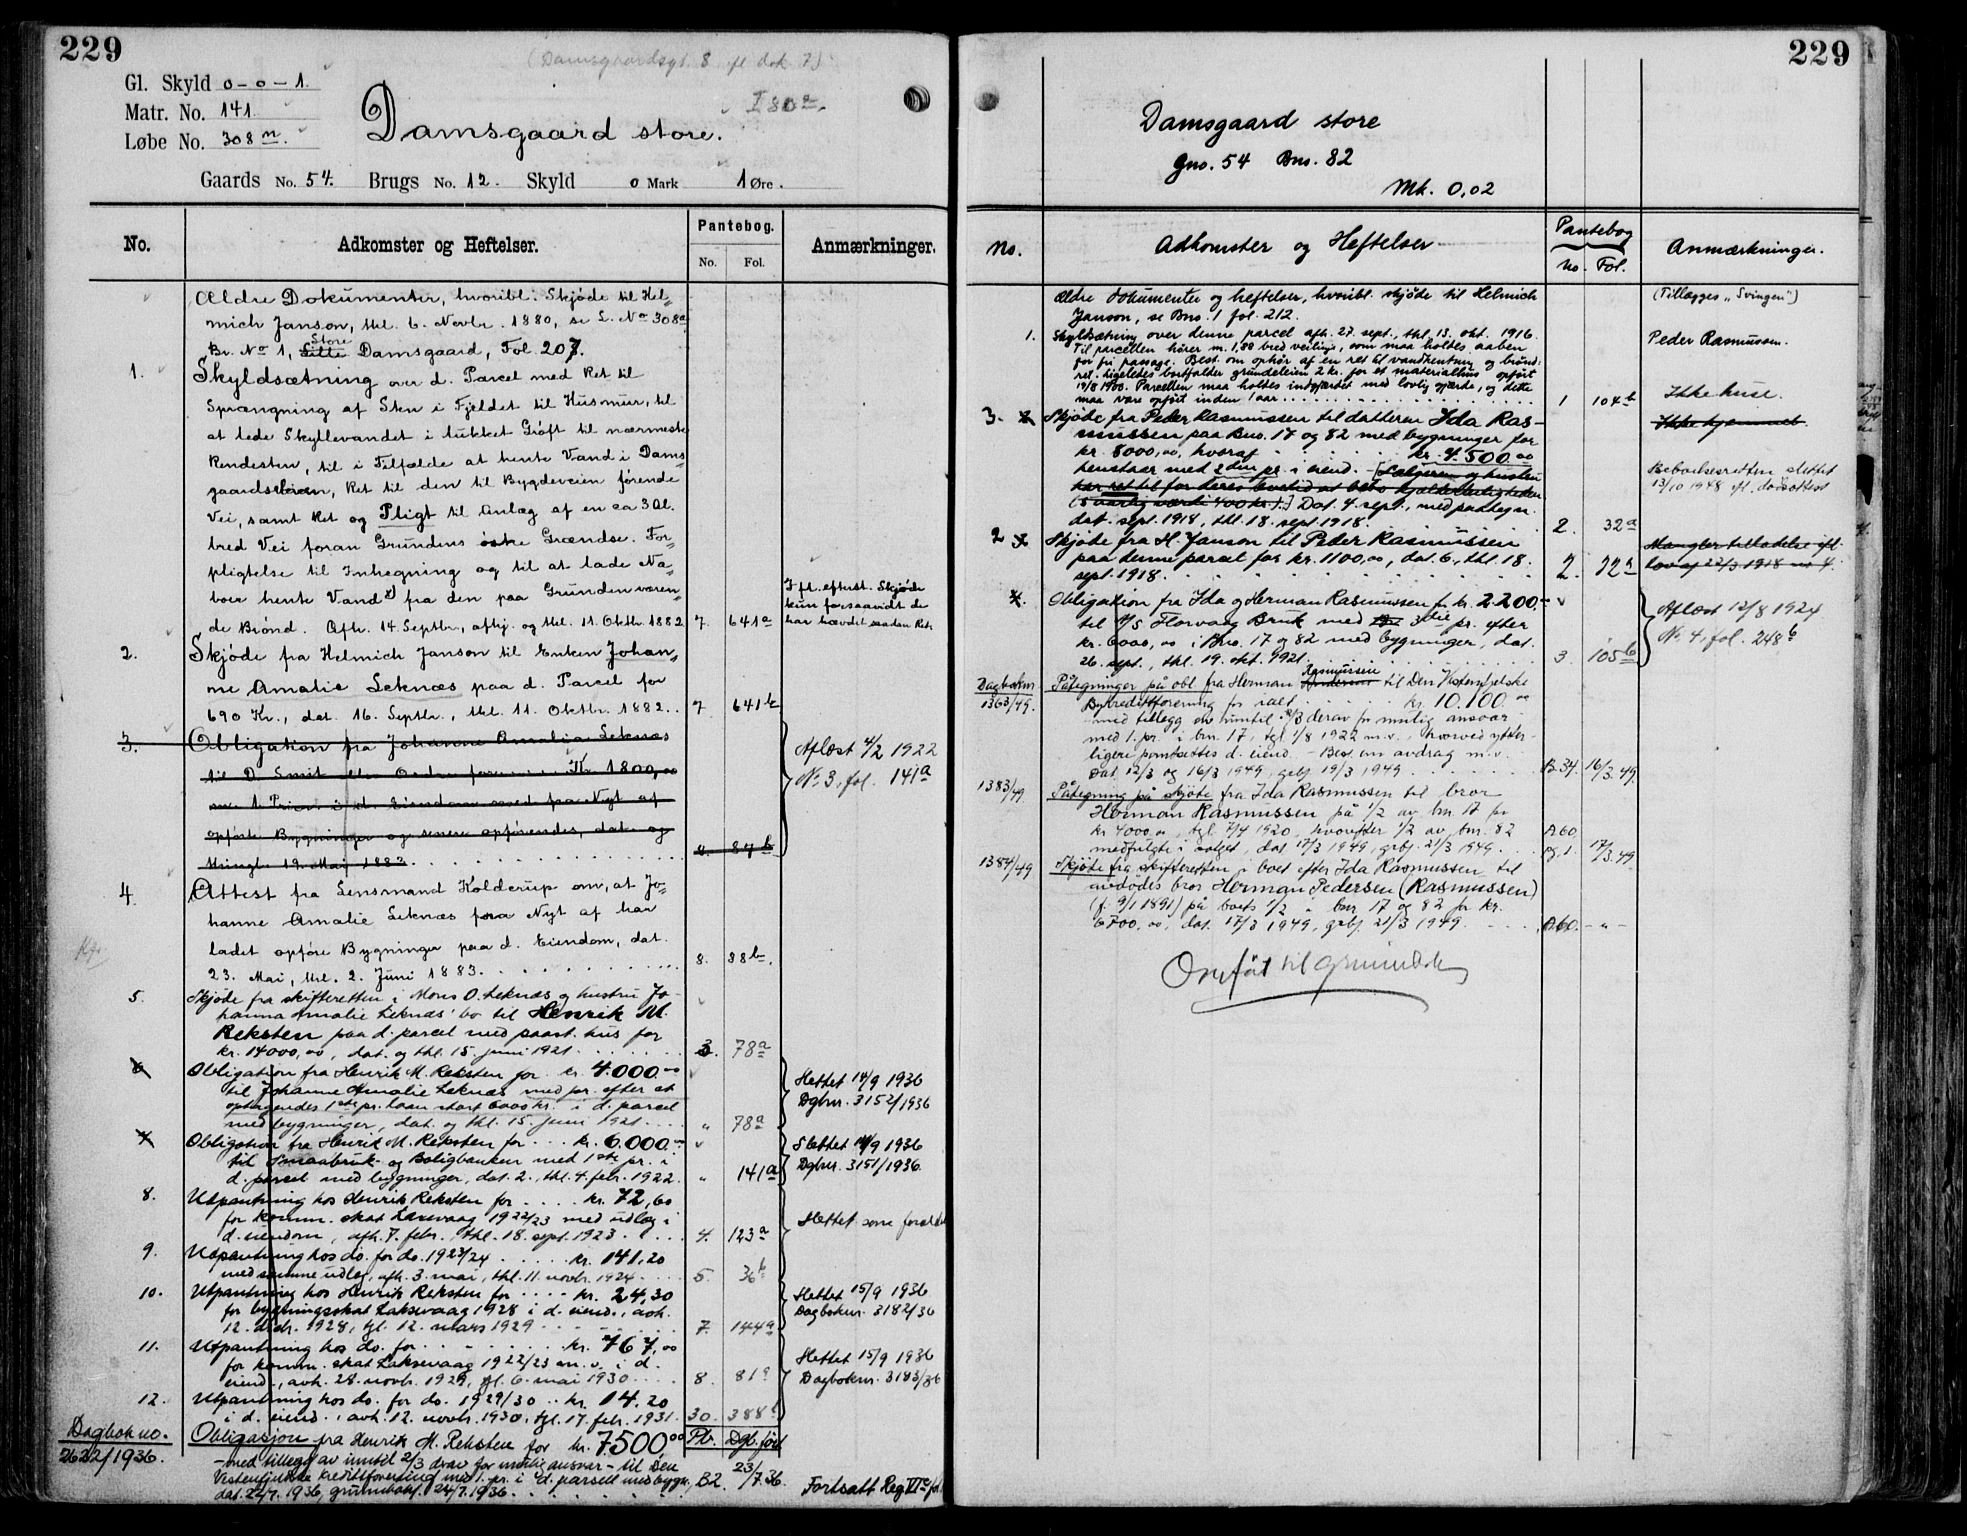 229
(Damsgaardsgt. 8 ifl dok 7)
Gl. Skyld 0-0-1.
Matr. No. 141
Løbe No. 308 m.
Damsgaard store.
I 80 a.
Gaards No. 54. Brugs No. 12. Skyld 0 Mark 1 Øre.
No. Adkomster og Heftelser. Pantebog. No. Fol. Anmærkninger.
Ældre Dokumenter, hvoribl. Skjøde til Hel-
mich Janson, thl. 6. Novbr. 1880, se L. No 308a
Br. No 1, Litle Store Damsgaard, Fol. 207.
1. Skyldsætning over d. Parcel med Ret til
Sprængning af Sten i Fjeldet til Husmur, til
at lede Skyllevandet i lukket Grøft til nærmeste
Rendesten, til i Tilfælde at hente Vand i Dams-
gaardselven, Ret til den til Bygdeveien førende
Vei, samt Ret og Pligt til Anlæg af en ca 3 Al.
bred Vei foran Grundens østre Grændse. For-
pligtelse til Indhegning og til at lade Na-
boer hente Vand x) fra den paa Grunden væren-
de Brønd. Afh. 14. Septbr., afhj. og thl. 11. Oktbr. 1882 7. 641a
Ifl. efterst. Skjøde
kun forsaavidt de
har hævdet saadan Ret.
2. Skjøde fra Helmich Janson til Enken Johan-
ne Amalie Leknæs paa d. Parcel for
690 Kr., dat. 16. Septbr., thl. 11. Oktbr. 1882. 7 641b
3. Obligation fra Johanne Amalie Leknæs
til D. Smit eller Ordre for . . . . Kr. 1800,00
m. 1. Prior. i d. Eiendom med paa Nyt af
opførte Bygninger og senere opførendes, dat. og
thingl. 19. Mai 1883. 8. 87b
Aflæst 4/2 1922
No. 3, fol. 141a
4. Attest fra Lensmand Kolderup om, at Jo-
hanne Amalie Leknæs fra Nyt af har
ladet opføre Bygninger paa d. Eiendom, dat.
23. Mai, thl. 2. Juni 1883. 8. 88b.
5. Skjøde fra skifteretten i Mons O. Leknæs og hustru Jo-
hanna Amalie Leknæs' bo til Henrik M.
Reksten paa d. parcel med paast. hus for
kr. 14000,00, dat. og thl. 15. juni 1921. 3. 78a
6 Obligation fra Henrik M. Reksten for kr. 4.000.00
til Johanne Amalie Leknæs med pr. efter et
optagendes 1ste pr. laan stort 6000 kr. i d. parcel
med bygninger, dat. og thl. 15. juni 1921. " 78a
Slettet 14/9 1936
Dgbnr. 3152/1936
7 Obligation fra Henrik M. Reksten for . . . kr. 6.000.00
til Smaabruk- og Boligbanken med 1ste pr. i
d. parcel med bygninger, dat. 2., thl. 4. febr. 1922. " 141a
Slettet 14/9 1936
Dgbnr. 3151/1936.
8. Utpantning hos Henrik Reksten for . . . . kr. 72,60
for komm. skat Laksevaag 1922/23 med udlæg i
d. eiendom, afh. 7. febr., thl. 18. sept. 1923. 4. 123a
Slettet som forældet
9. Udpantning hos do. for do. 1923/24 . . . . kr. 141,20
med samme udlæg, afh. 3. mai, thl. 11. novbr. 1924 5. 36b
10. Utpantning hos Henrik Reksten for . . . . kr. 24,30
for bygningsskat Laksevaag 1928 i d. eiend., avh.
12. dcbr. 1928, tgl. 12. mars 1929 7. 144a
Slettet 15/9 1936
Dagboknr. 3182/36
11. Utpantning hos do. for . . . . . . . kr. 767,00
for komm. skat Laksevaag 1922/23 m. v. i d.
eiend., avh. 28. novbr. 1929, tgl. 6. mai 1930 8. 81a
Slettet 15/9 1936
Dagboknr. 3183/36
12. Utpantning hos do. for do. 1929/30 . . kr. 14.20
i d. eiend., avh. 12. novbr. 1930, tgl. 17. febr. 1931. 30. 388b
Dagbok no.
2622/1936.
Obligasjon fra Henrik M. Reksten for kr. 7500.00 Pb. Dgb. ført
- med tillegg av inntil 2/3 derav for mulig ansvar - til Den
Vestenfjelske Kredittforening med 1. pr. i d. parsell med bygn., B2. 23/7.36.
dat. 22/7. 1936, grunnbokf. 24/7. 1936.
Fortsatt Reg VI
229
Damsgaard store
Gno. 54 Bns. 82
Mk. 0,02
No. Adkomster og Heftelser Pantebog No. Fol. Anmærkninger.
Ældre dokumenter og heftelser, hvoribl. skjøde til Helmich
Janson, se Bno. 1 fol. 212.
(Tillægges „Svingen")
1. Skyldsætning over denne parcel afh. 27. sept., thl. 13. okt. 1916.
Til parcellen hører m. 1,88 bred veilinje, som maa holdes aaben
for fri passage. Best. om ophør af en ret til vandhentning og brønd-
ret. Ligeledes bortfalder grundeleien 2 kr. for et materialhus opført
19/8 1900. Parcellen maa holdes indgjærdet med lovlig gjærde, og dette
maa være opført inden 1 aar. 1 104b
Peder Rasmussen.
Ikke huse.
3. Skjøde fra Peder Rasmussen til datteren Ida Ras-
mussen paa Bno. 17 og 82 med bygninger for
kr. 8000,00, hvoraf . . . . . . kr. 4.500.00
henstaar med 2den pr. i eiend. - [Sælgeren og hustru
har ret til for deres levetid at bebo kjælderleiligheden
(5 aarlig værdi 400 kr.).] Dat. 4. sept., med paategn.
dat. sept. 1918, thl. 18. sept. 1918. 2. 32a
Ikke hjemmel.
Beboelsesretten slettet
13/10 1948 ifl. dødsattest
2 Skjøde fra H. Janson til Peder Rasmussen
paa denne parcel for kr. 1100,00, dat. 6., thl. 18.
sept. 1918. 2. 32a
Mangler tilladelse efl.
lov af 22/3 1918 no 4.
4. Obligation fra Ida og Herman Rasmussen for kr. 2.200.-
til A/S Florvaag Bruk med 3die pr. efter
kr. 6000,00 i Bno. 17 og 82 med bygninger, dat.
26. sept., thl. 19. okt. 1921. 3. 105b
Aflæst 12/8 1924
No. 4, fol. 248b
Dagboknr
1363/49.
Påtegninger på obl. fra Herman Rasmussen til Den Vestenfjelske
Bykredittforening for ialt . . . . . kr. 10.100.00
med tillegg av inntil 2/3 derav for mulig ansvar
med 1. pr. i bnr. 17, tgl. 1/8 1922 m.v., hvorved ytter-
ligere pantsettes d. eiend. - Best. om avdrag m.v.
Dat. 12/3 og 16/3 1949, grbf. 19/3 1949. B.34. 16/3.49.
1383/49. Påtegning på skjøte fra Ida Rasmussen til bror
Herman Rasmussen på 1/2 av bnr. 17 for
kr 4000,00, tgl. 7/4 1920, hvorefter 1/2 av bnr. 82
medfulgte i salget, dat 17/3 1949, grbf. 21/3 1949. A60 pg. 1. 17/3.49
1384/49 Skjøte fra skifteretten i boet efter Ida Rasmussen til
avdødes bror Herman Pedersen (Rasmussen)
(f. 9/1 1891) på boets 1/2 i bnr 17 og 82 for kr.
6700,00, dat. 17/3 1949, grbf. 21/3 1949. A60. - " -
Omført til grunnbok